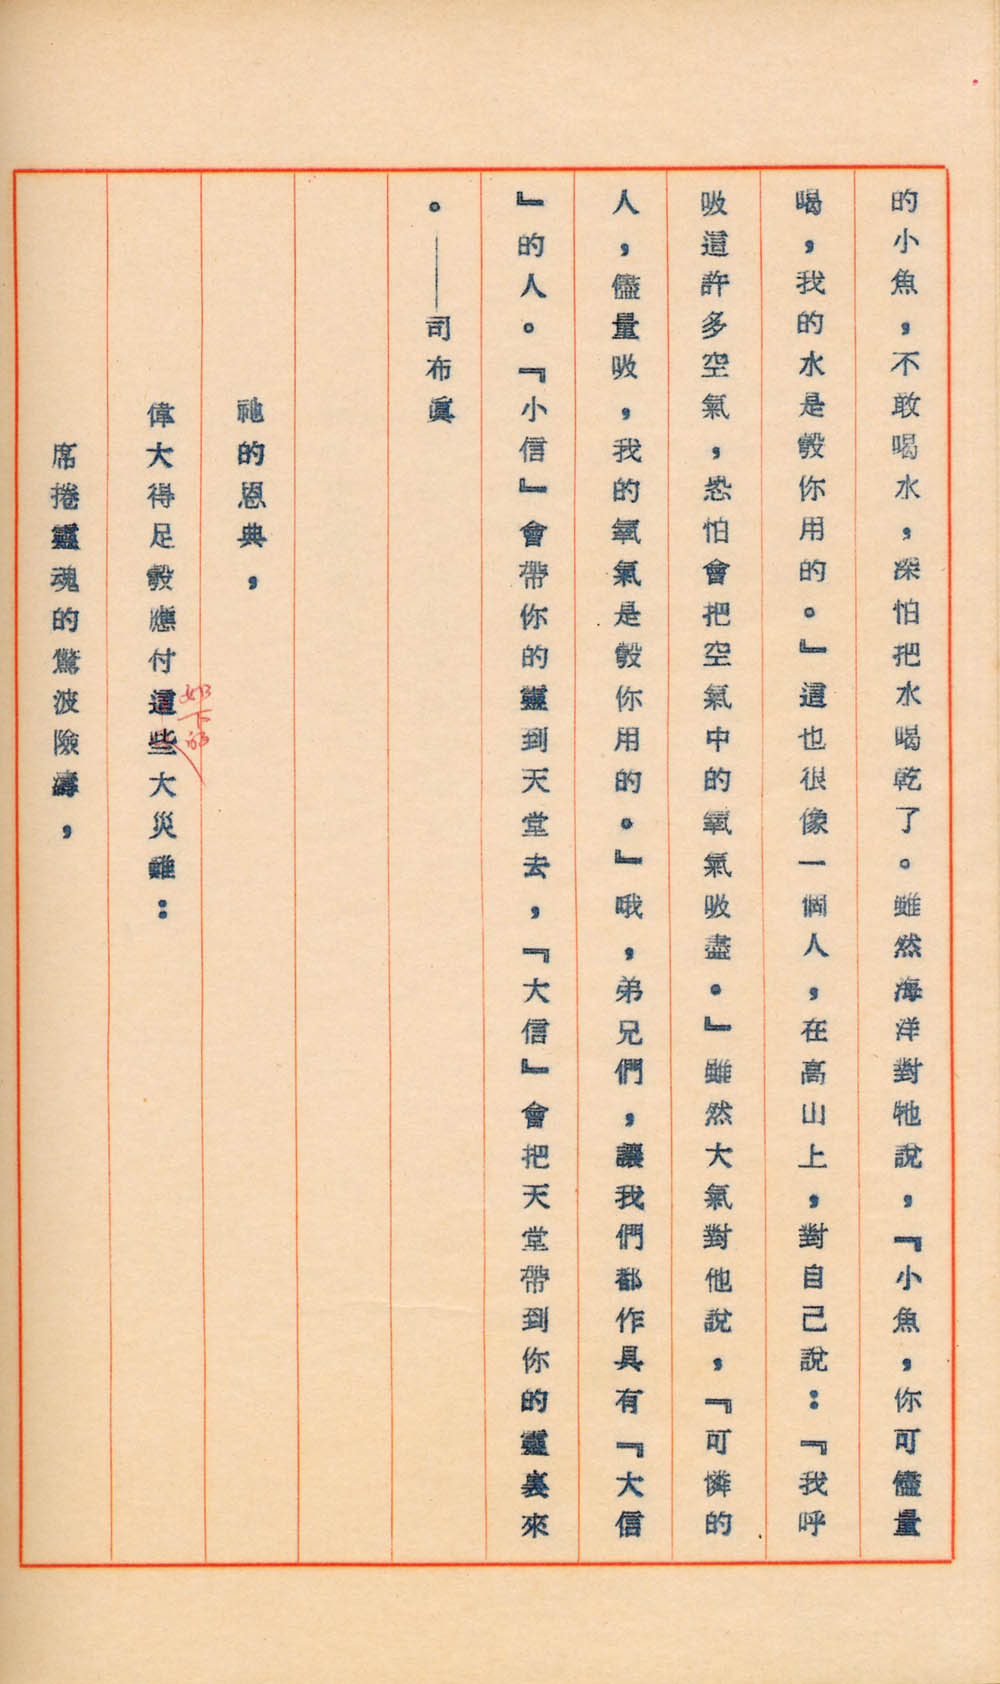 的小魚，不敢喝水，深怕把水喝乾了。雖然海洋對牠說，『小魚，你可儘量
喝，我的水是彀你用的。』這也很像一個人，在高山上，對自己說：『我呼
吸這許多空氣，恐怕會把空氣中的氧氣吸盡。』雖然大氣對他說，『可憐的
人，儘量吸，我的氧氣是彀你用的。』哦，弟兄們，讓我們都作具有『大信
』的人。『小信』會帶你的靈到天堂去，『大信』會把天堂帶到你的靈裏來
。——司布眞
祂的恩典，
偉大得足彀應付這些大災難：
如下的
席捲靈魂的驚波險濤，